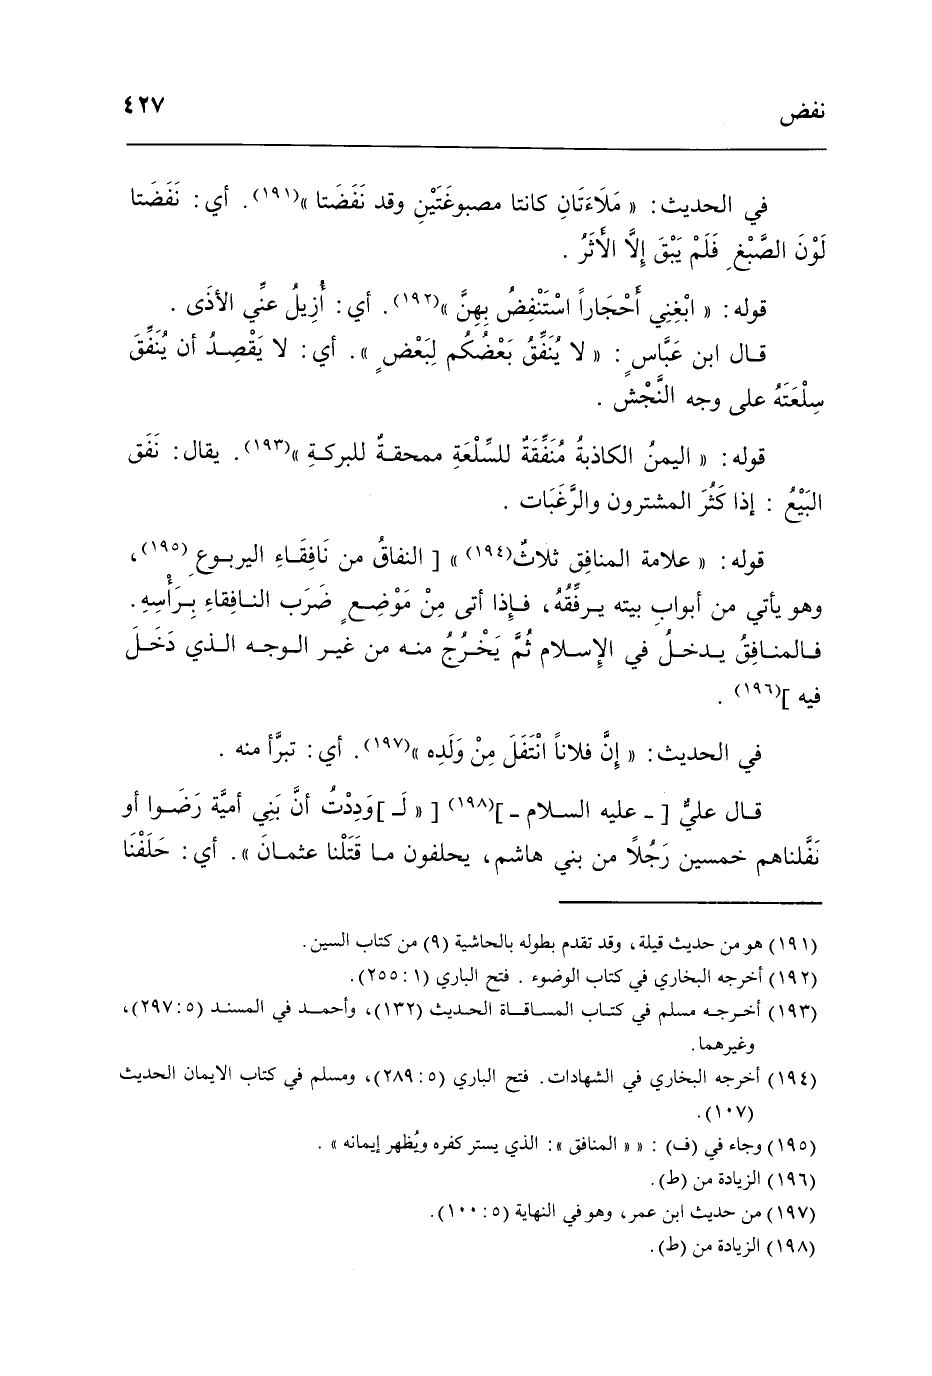 نفض ٤٢٧
في الحديث: « مَلَاءَتَانِ كانتا مصبوغَتَيْنِ وقد نَفَضَتا »(١٩١). أي: نَفَضَتا
لَوْنَ الصَّبْغِ فَلَمْ يَبْقَ إلَّا الأَثَرُ .
قوله: « ابْغِنِي أَحْجَاراً اسْتَنْفِضُ بِهِنَّ »(١٩٢). أي: أُزِيلُ عنِّي الأذَى .
قـال ابن عَبَّاسٍ : « لا يُنَفِّقُ بَعْضُكُم لِبَعْضٍ ». أي: لا يَقْصِـدُ أن يُنَفِّقَ
سِلْعَتَهُ على وجه النَّجْش .
قوله: « اليمنُ الكاذبةُ مُنَفِّقَةٌ للسِّلْعَةِ ممحقـةٌ للبركـةِ »(١٩٣). يقال: نَفَق
البَيْعُ : إذا كَثُرَ المشترون والرَّغَبَات .
قوله: « علامة المنافِق ثلاثٌ(١٩٤) » [ النفاقُ من نَافِقَـاءِ اليربـوعِ (١٩٥)،
وهو يأتي من أبوابِ بيته يـرفِّقُهُ، فـإذا أتى مِنْ مَوْضِـعٍ ضَرَب النـافِقاءِ بِـرَأْسِهِ.
فـالمنـافِقُ يـدخـلُ في الإسـلام ثُمَّ يَخْـرُجُ منـه من غيـر الـوجـه الـذي دَخَـلَ
فيه ](١٩٦) .
في الحديث: « إنَّ فلاناً انْتَفَلَ مِنْ وَلَدِه »(١٩٧). أي: تبرَّأ منه .
قـال عليٌّ [ ـ عليه السـلام ـ ](١٩٨) [ « لَـ ]وَدِدْتُ أنَّ بَنِي أميَّة رَضَـوا أو
نَفَّلناهم خمسين رَجُلاً من بني هاشم، يحلفون مـا قَتَلْنا عثمـانَ ». أي: حَلَفْنَا
(١٩١) هو من حديث قيلة، وقد تقدم بطوله بالحاشية (٩) من كتاب السين.
(١٩٢) أخرجه البخاري في كتاب الوضوء . فتح الباري (١ : ٢٥٥).
(١٩٣) أخـرجـه مسلم في كتـاب المسـاقـاة الحـديث (١٣٢)، وأحمـد في المسنـد (٥ : ٢٩٧)،
وغيرهما.
(١٩٤) أخرجه البخاري في الشهادات. فتح الباري (٥ : ٢٨٩)، ومسلم في كتاب الايمان الحديث
(١٠٧).
(١٩٥) وجاء في (ف) : « « المنافق »: الذي يستر كفره ويُظهر إيمانه » .
(١٩٦) الزيادة من (ط).
(١٩٧) من حديث ابن عمر، وهو في النهاية (٥ : ١٠٠).
(١٩٨) الزيادة من (ط).